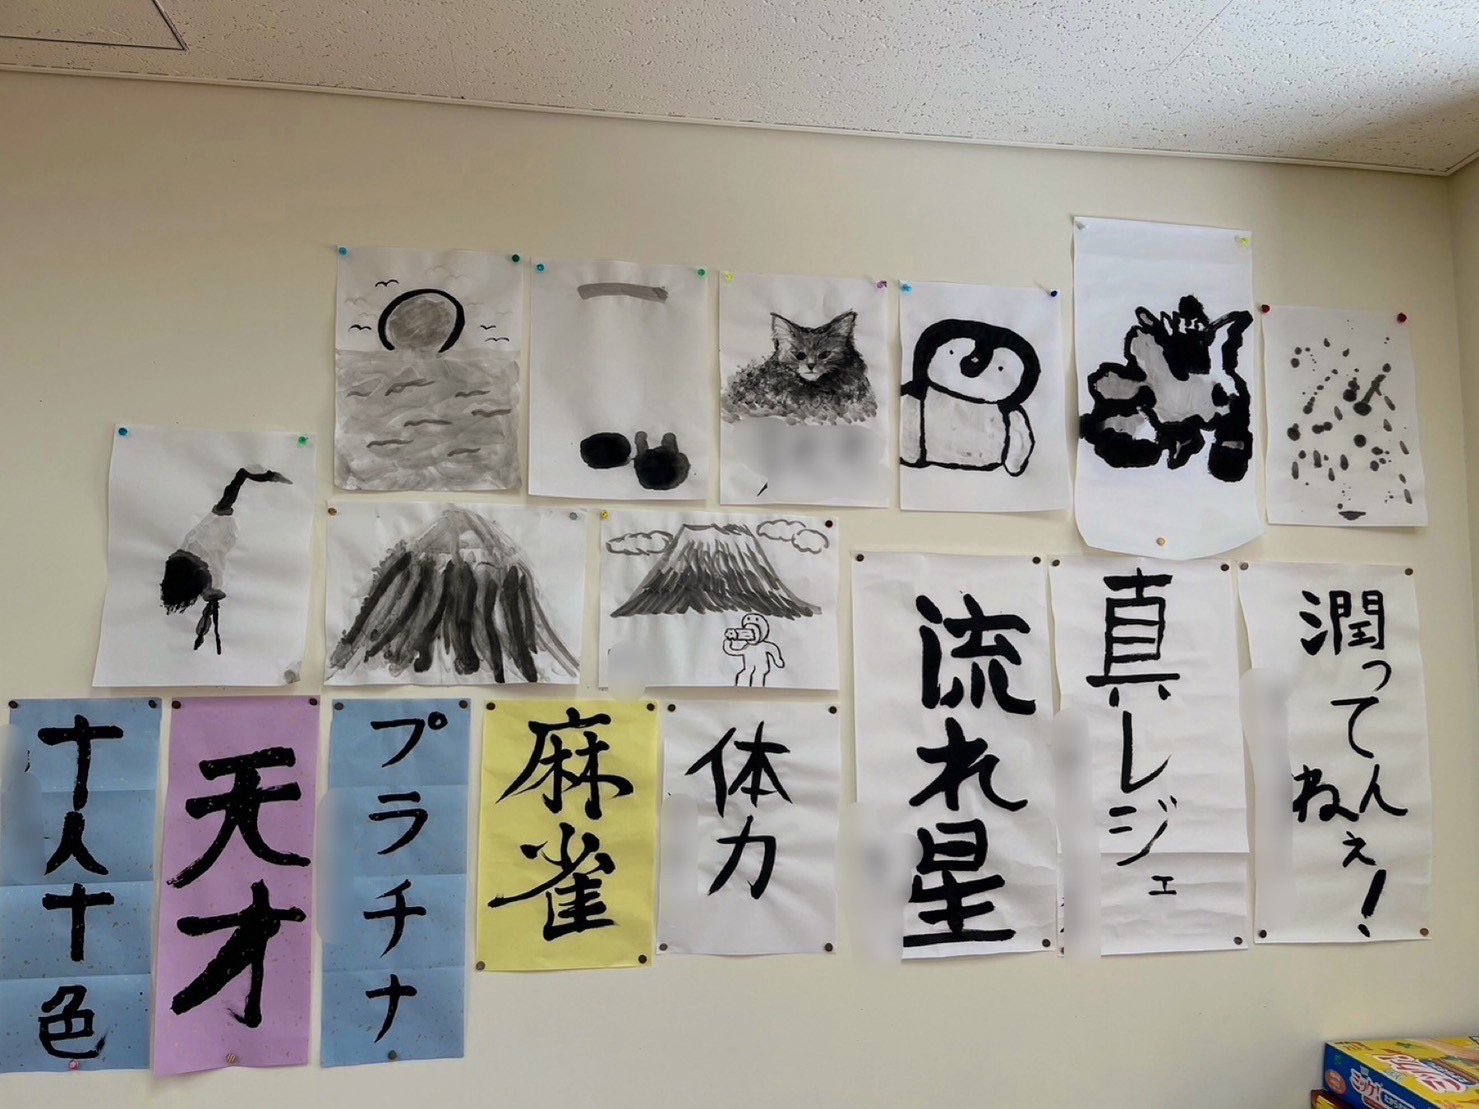 潤ってんねぇ!
真レジェ
流れ星
体力
麻雀
プラチナ
天才
十人十色